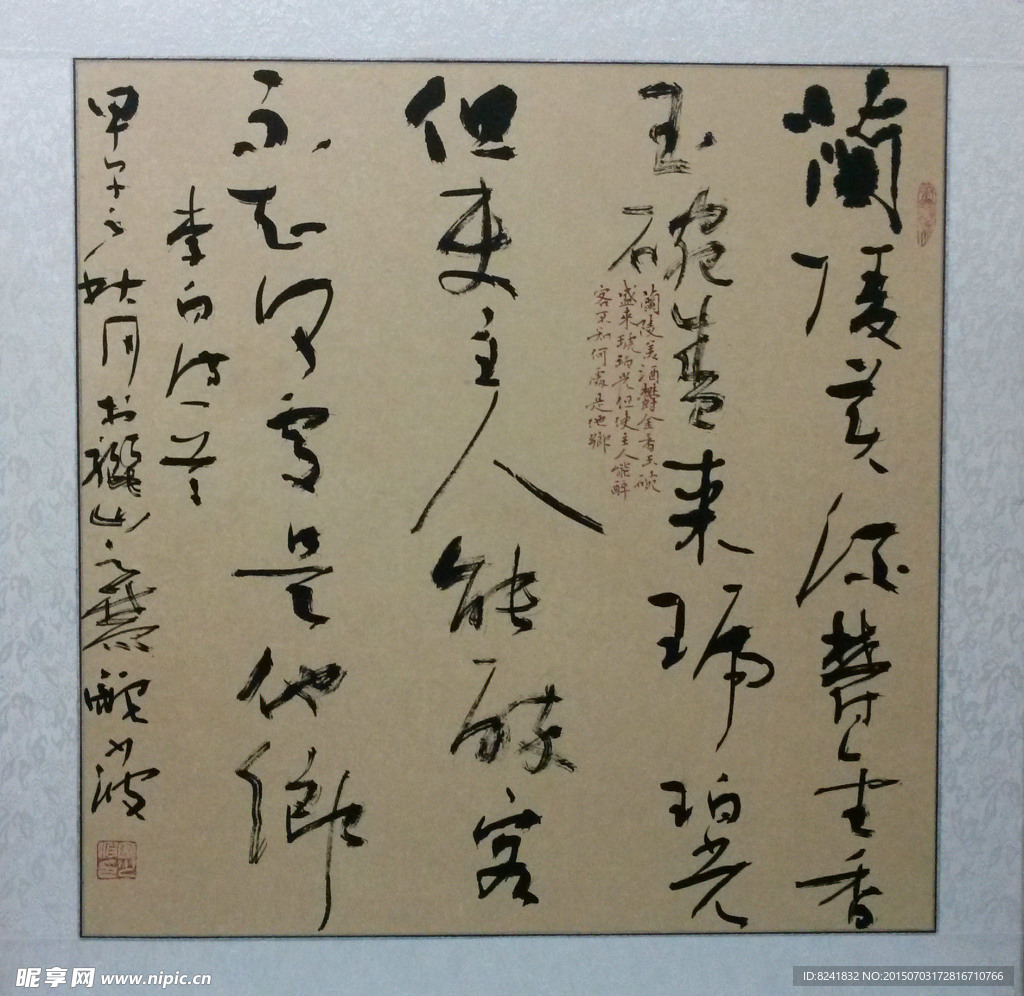 蘭陵美酒鬱金香
玉碗盛來琥珀光
蘭陵美酒鬱金香玉碗
盛來琥珀光但使主人能醉
客不知何處是他鄉
但使主人能醉客
不知何處是他鄉
李白诗一首
甲午之秋月於山之齋
昵享网 www.nipic.cn
ID:8241832 NO:20150703172816710766